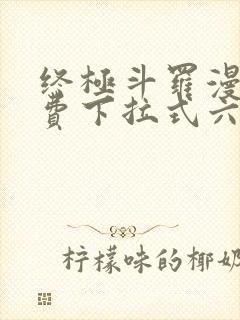 终极斗罗漫
费下拉式六
柠檬味的椰奶